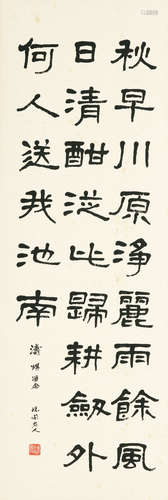 秋早川原淨麗雨餘風
日清酣從此歸耕劔外
何人送我池南